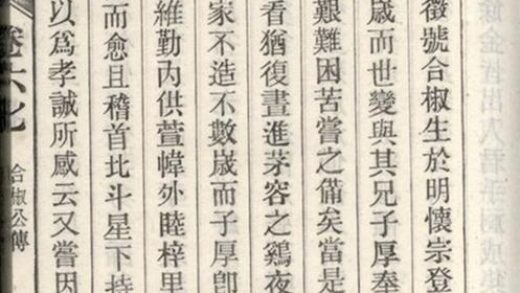 徵號合椒生於明懷宗登
歲而世變與其兄子厚奉
艱難困苦嘗之備矣當是
看猶復晝進茅容之鷄夜
家不造不數歲而子厚卽
維勤內供萱幃外睦梓里
而愈且稽首北斗星下持
以爲孝誠所感云又嘗因
卷六七
合椒公傳